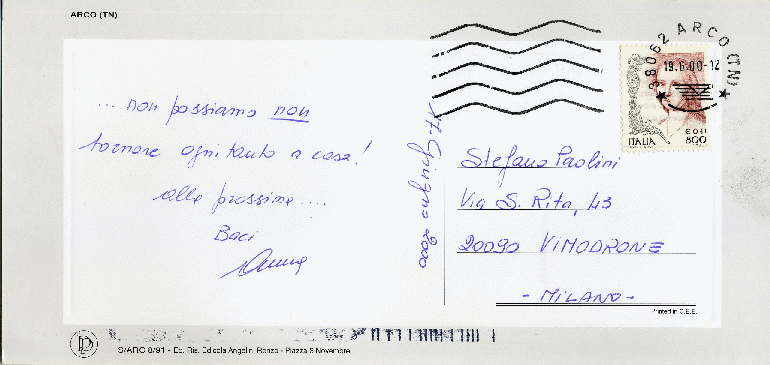 ARCO (TN)
... non possiamo non
tornare ogni tanto a casa!
alla prossima ....
Baci
17. Giugno 2000
38062 ARCO (TN)
19.6.00-12
ITALIA
€ 0,41
800
Stefano Paolini
Via S. Rita, 43
20090 VIMODRONE
- MILANO -
Printed in C.E.E.
S/ARC 8/91 - Ed. Ris. Edicola Angelini Renzo - Piazza 3 Novembre